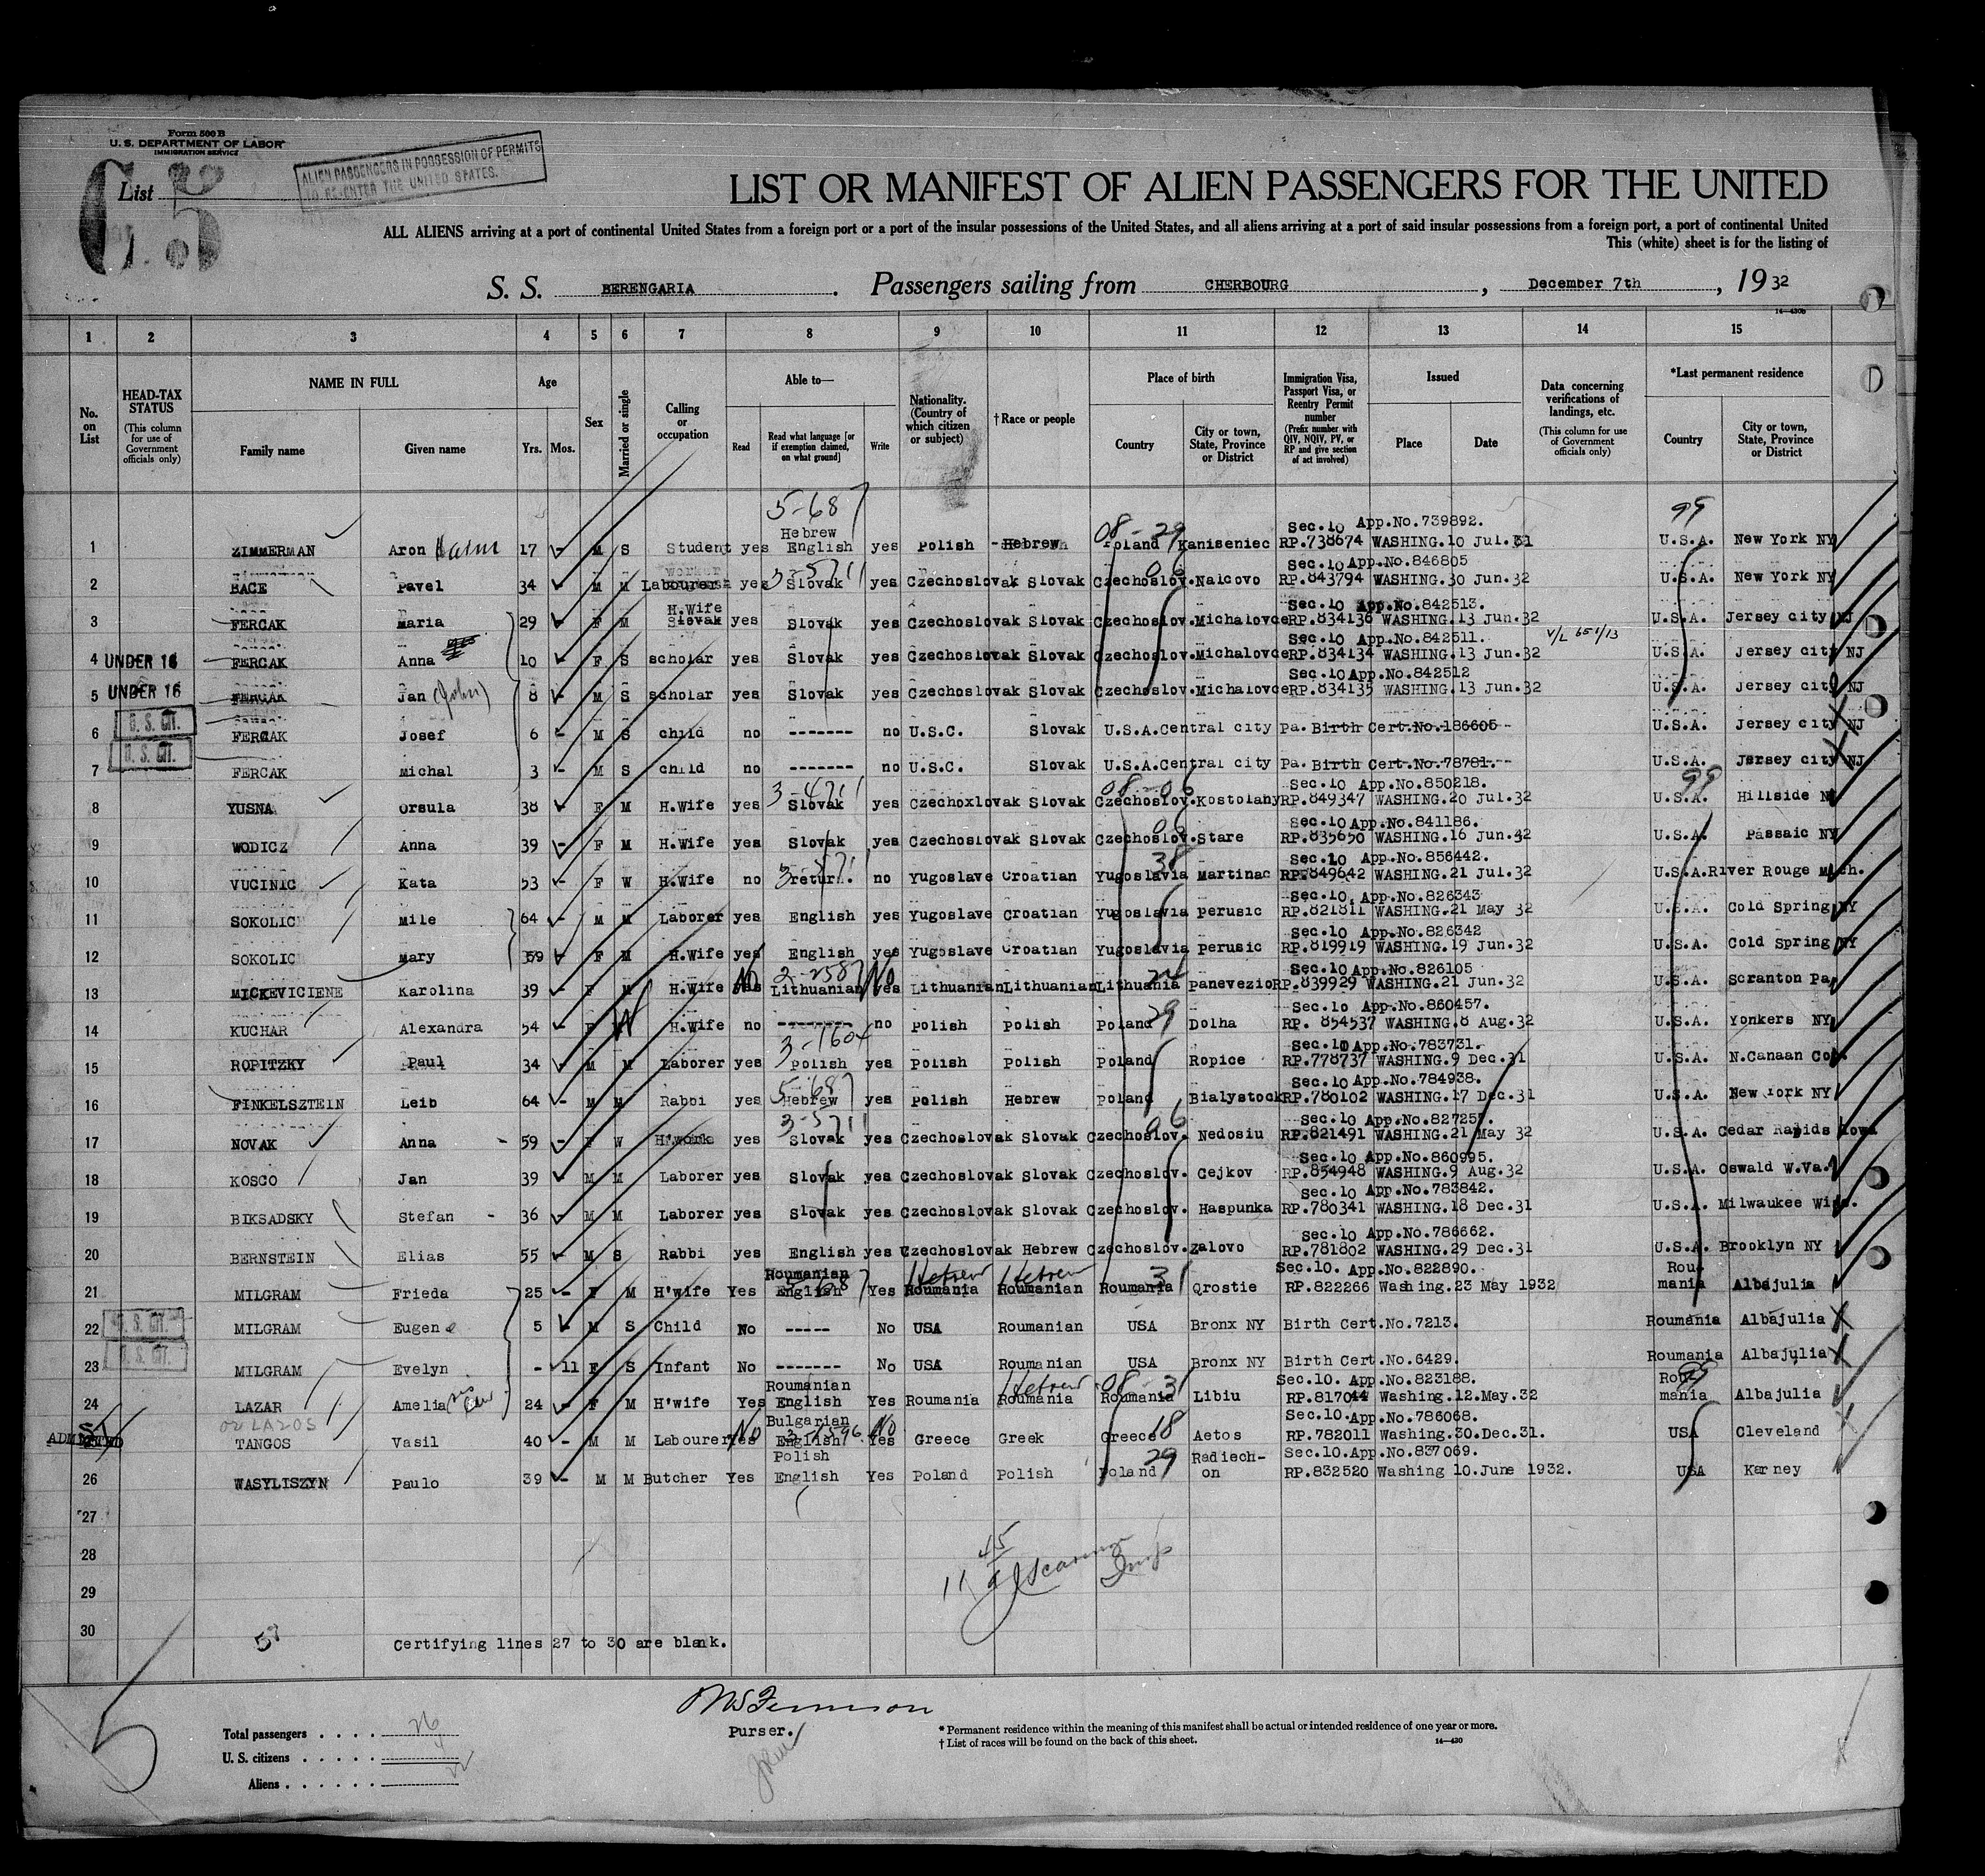 Form 500 B
U. S. DEPARTMENT OF LABOR
IMMIGRATION SERVICE
List 5
ALIEN PASSENGERS IN POSSESSION OF PERMITS
TO RE-ENTER THE UNITED STATES.
LIST OR MANIFEST OF ALIEN PASSENGERS FOR THE UNITED
ALL ALIENS arriving at a port of continental United States from a foreign port or a port of the insular possessions of the United States, and all aliens arriving at a port of said insular possessions from a foreign port, a port of continental United
This (white) sheet is for the listing of
S. S. BERENGARIA. Passengers sailing from CHERBOURG, December 7th, 19 32
14-430b
1 2 3 4 5 6 7 8 9 10 11 12 13 14 15
No. on List
HEAD-TAX STATUS (This column for use of Government officials only)
NAME IN FULL Family name Given name
Age Yrs. Mos.
Sex
Married or single
Calling or occupation
Able to— Read Read what language [or if exemption claimed, on what ground] Write
Nationality. (Country of which citizen or subject)
†Race or people
Place of birth Country City or town, State, Province or District
Immigration Visa, Passport Visa, or Reentry Permit number (Prefix number with QIV, NQIV, PV, or RP and give section of act involved)
Issued Place Date
Data concerning verifications of landings, etc. (This column for use of Government officials only)
*Last permanent residence Country City or town, State, Province or District
5-687 08-29 99
Hebrew Sec.10 App.No.739892.
1 ZIMMERMAN Aron 17 - M S Student yes English yes Polish Hebrew Poland Kaniseniec RP.738674 WASHING.10 Jul.31 U.S.A. New York NY
Sec.10 App.No.846805
2 BACE Pavel 34 M M Labourer yes Slovak yes Czechoslovak Slovak Czechoslov. Nalcovo RP.843794 WASHING.30 Jun.32 U.S.A. New York NY
H.Wife Sec.10 App.No.842513.
3 FERCAK Maria 29 F M Slovak yes Slovak yes Czechoslovak Slovak Czechoslov. Michalovce RP.834136 WASHING.13 Jun.32 U.S.A. Jersey city NJ
Sec.10 App.No.842511.
4 UNDER 16 FERCAK Anna 10 F S scholar yes Slovak yes Czechoslovak Slovak Czechoslov. Michalovce RP.834134 WASHING.13 Jun.32 U.S.A. Jersey city NJ
Sec.10 App.No.842512
5 UNDER 16 FERCAK Jan (John) 8 M S scholar yes Slovak yes Czechoslovak Slovak Czechoslov. Michalovce RP.834135 WASHING.13 Jun.32 U.S.A. Jersey city NJ
6 U. S. CIT. FERCAK Josef 6 - M S child no ------- no U.S.C. Slovak U.S.A. Central city Pa. Birth Cert.No.186605 U.S.A. Jersey city NJ
7 U. S. CIT. FERCAK Michal 3 - M S child no ------- no U.S.C. Slovak U.S.A. Central city Pa. Birth Cert.No.78781. U.S.A. Jersey city NJ
08-06 99
Sec.10 App.No.850218.
8 YUSNA Orsula 38 F M H.Wife yes Slovak yes Czechoxlovak Slovak Czechoslov. Kostolany RP.849347 WASHING.20 Jul.32 U.S.A. Hillside
Sec.10 App.No.841186.
9 WODICZ Anna 39 F M H.Wife yes Slovak yes Czechoslovak Slovak Czechoslov. Stare RP.835650 WASHING.16 Jun.32 U.S.A. Passaic NY
Sec.10 App.No.856442.
10 VUCINIC Kata 53 F W H.Wife no retur. no Yugoslave Croatian Yugoslavia Martinac RP.849642 WASHING.21 Jul.32 U.S.A. River Rouge Mich.
Sec.10. App.No.826343
11 SOKOLIC Mile 64 - M M Laborer yes English yes Yugoslave Croatian Yugoslavia Perusic RP.821811 WASHING.21 May 32 U.S.A. Cold Spring NY
Sec.10 App.No.826342
12 SOKOLIC Mary 59 F M H.Wife yes English yes Yugoslave Croatian Yugoslavia Perusic RP.819919 WASHING.19 Jun.32 U.S.A. Cold Spring NY
No No 24
Sec.10 App.No.826105
13 MICKEVICIENE Karolina 39 - F M H.Wife yes Lithuanian yes Lithuanian Lithuanian Lithuania Panevezio RP.839929 WASHING.21 Jun.32 U.S.A. Scranton Pa
Sec.10 App.No.860457.
14 KUCHAR Alexandra 54 - F W H.Wife no -------- no Polish Polish Poland 29 Dolha RP. 854537 WASHING.8 Aug.32 U.S.A. Yonkers NY
3-1604 Sec.10 App.No.783731.
15 ROPITZKY Paul 34 M M Laborer yes Polish yes Polish Polish Poland Ropice RP.778737 WASHING.9 Dec.31 U.S.A. N.Canaan Co
5-687 Sec.10 App.No.784938.
16 FINKELSZTEIN Leib 64 - M M Rabbi yes Hebrew yes Polish Hebrew Poland Bialystock RP.780102 WASHING.17 Dec.31 U.S.A. New York NY
06 Sec.10 App.No.827257.
17 NOVAK Anna - 59 - F W H'work yes Slovak yes Czechoslovak Slovak Czechoslov. Nedosiu RP.821491 WASHING.21 May 32 U.S.A. Cedar Rapids Iowa
Sec.10 App.No.860995.
18 KOSCO Jan 39 M M Laborer yes Slovak yes Czechoslovak Slovak Czechoslov. Cejkov RP.854948 WASHING.9 Aug.32 U.S.A. Oswald W.Va.
Sec.10 App.No.783842.
19 BIKSADSKY Stefan - 36 M M Laborer yes Slovak yes Czechoslovak Slovak Czechoslov. Haspunka RP.780341 WASHING.18 Dec.31 U.S.A. Milwaukee Wis.
Sec.10 App.No.786662.
20 BERNSTEIN Elias 55 - M S Rabbi yes English yes Czechoslovak Hebrew Czechoslov. Zalovo RP.781802 WASHING.29 Dec.31 U.S.A. Brooklyn NY
Roumanian Hebrew Hebrew 31 Sec.10. App.No.822890. Rou-
21 MILGRAM Frieda 25 - F M H'wife Yes English Yes Roumania Roumanian Roumania Qrostie RP.822266 Washing.23 May 1932 mania Albajulia
22 U. S. CIT. MILGRAM Eugen 5 M S Child No ----- No USA Roumanian USA Bronx NY Birth Cert.No.7213. Roumania Albajulia
23 U. S. CIT. MILGRAM Evelyn - 11 F S Infant No ------- No USA Roumanian USA Bronx NY Birth Cert.No.6429. Roumania Albajulia
Roumanian Hebrew 08-31 Sec.10. App.No.823188. 99 Rou-
24 LAZAR Amelia 24 - F M H'wife Yes English Yes Roumania Roumania Roumania Libiu RP.817044 Washing.12.May.32 mania Albajulia
or LAZOS No Bulgarian No Sec.10.App.No.786068.
ADMITTED 25 TANGOS Vasil 40 - M M Labourer Yes English Yes Greece Greek Greece 18 Aetos RP.782011 Washing.30.Dec.31. USA Cleveland
Polish 29 Radiech- Sec.10.App.No.837069.
26 WASYLISZYN Paulo 39 - M M Butcher Yes English Yes Poland Polish Poland on RP.832520 Washing 10.June 1932. USA Karney
27
28
29
30
Certifying lines 27 to 30 are blank.
Purser.
Total passengers . . . . 26
U. S. citizens . . . . . 4
Aliens . . . . . . 22
* Permanent residence within the meaning of this manifest shall be actual or intended residence of one year or more.
† List of races will be found on the back of this sheet.
14-430